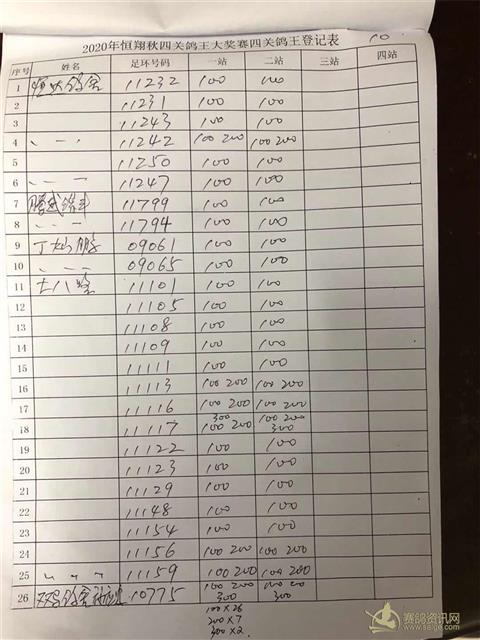 2020年恒翔秋四关鸽王大奖赛四关鸽王登记表
10
序号 姓名 足环号码 一站 二站 三站 四站
1 11232 100 100
2 11231 100 100
3 11243 100 100
4 〃 一 〃 11242 100 200 100 200
5 11250 100 100
6 〃 一 〃 11247 100 100
7 11799 100 100
8 11794 100 100
9 09061 100 100
10 09065 100 100
11 11101 100 100
12 11105 100 100
13 11108 100 100
14 11109 100 100
15 11111 100 100
16 11113 100 200 100 200
17 11116 100 200 100 200
18 11117 300 100 200 100 200 300
19 11122 100 100
20 11123 100 100
21 11129 100 100
22 11148 100 100
23 11154 100 100
24 11156 100 200 100 200
25 〃 〃 〃 11159 100 200 100 200
26 10775 100 200 300 100 200 300
100×26
200×7
300×2
赛鸽资讯网
www.saige.com